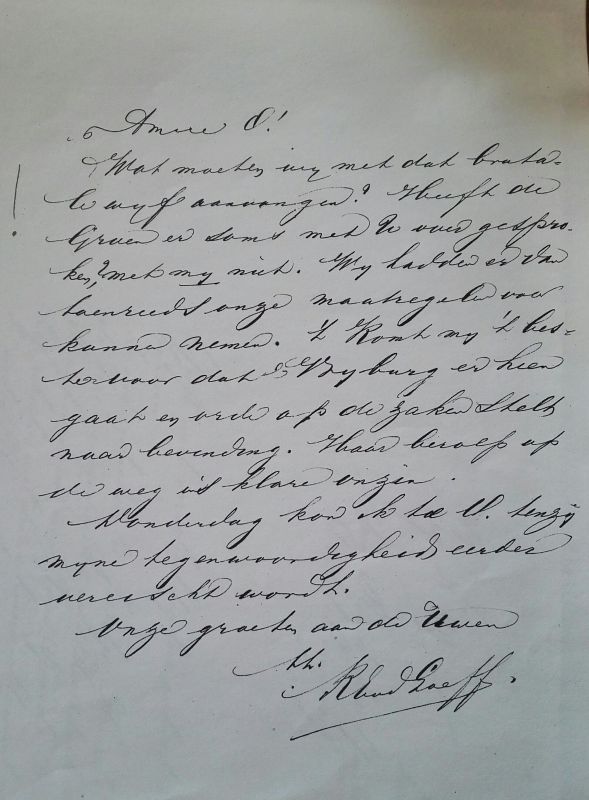 Amice O!
Wat moeten wy met dat bruta-
le wyf aanvangen? Heeft de
Groen er soms met U over gespro-
ken, ? met my niet. Wy hadden er dan
toen reeds onze maatregelen voor
kunnen nemen. 't Komt my 't bes-
te voor dat Ryburg er heen
gaat en orde op de zaken stelt
naar bevinding. Haar beroep op
de weg is klare onzin.
Donderdag kom ik te U. tenzy
myne tegenwoordigheid eerder
vereischt wordt.
Onze groeten aan de Uwen
tt.